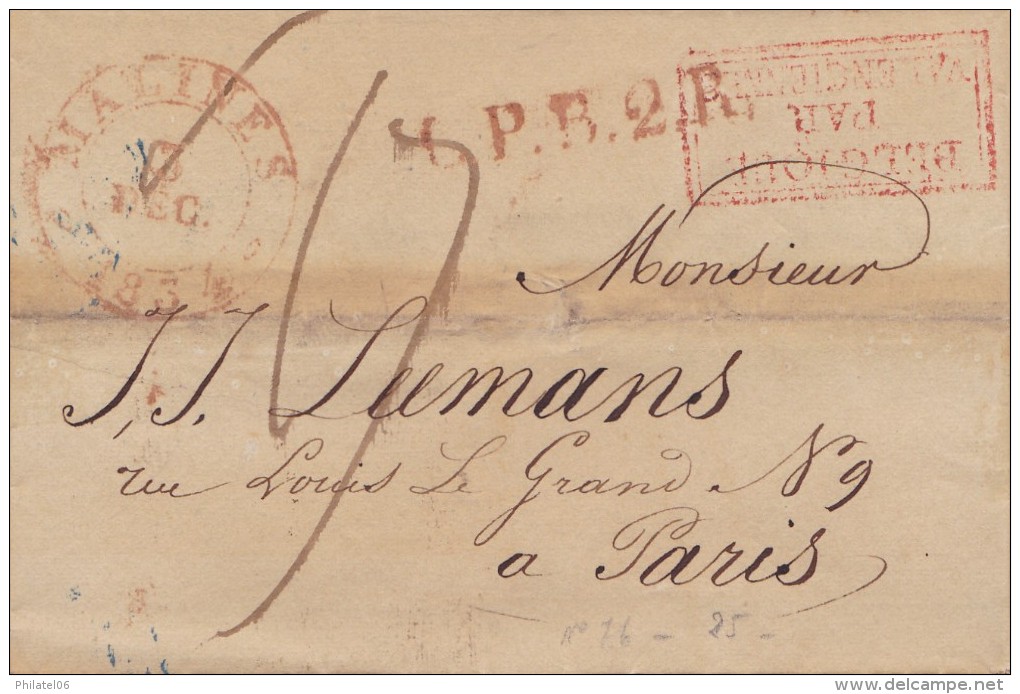 MALINES
6
DEC.
183
L.P.B.2.R.
BELGIQUE
PAR
VALENCIENNES
Monsieur
J, J. Leemans
rue Louis Le Grand N 9
a Paris
N° 76 - 85 -
Philatel06
delcampe.net